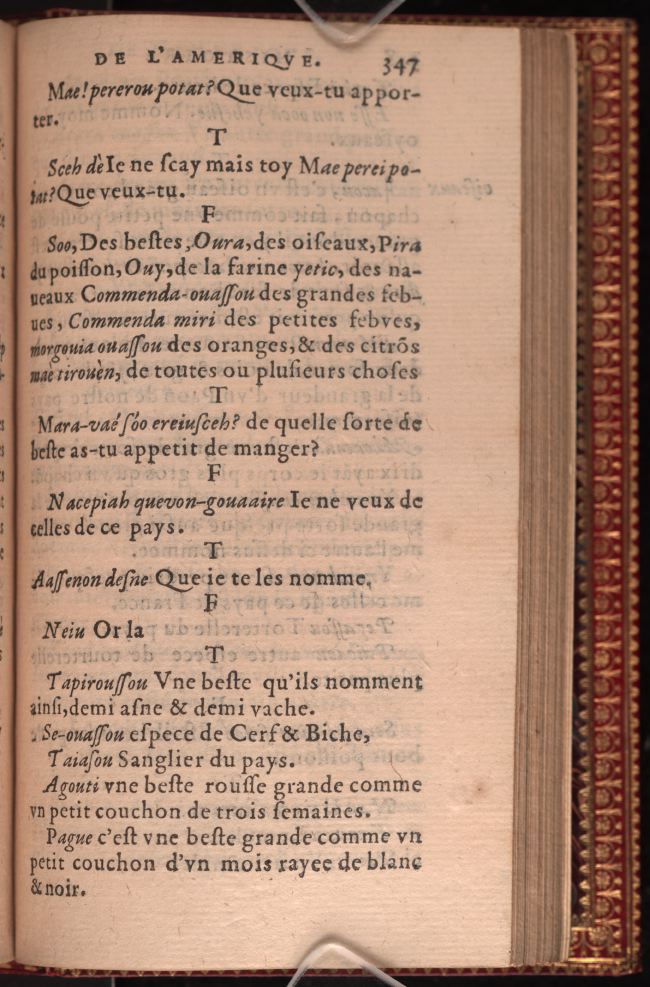 DE L'AMERIQVE. 347
Mae! pererou potat? Que veux-tu appor-
ter.
T
Sceh dè Ie ne scay mais toy Mae perei po-
tat? Que veux-tu.
F
Soo, Des bestes, Oura, des oiseaux, Pira
du poisson, Ouy, de la farine yetic, des na-
ueaux Commenda-ouassou des grandes feb-
ues, Commenda miri des petites febves,
morgouia ouassou des oranges, & des citrõs
mae tirouèn, de toutes ou plusieurs choses
T
Mara-vaé sóo ereiusceh? de quelle sorte de
beste as-tu appetit de manger?
F
Nacepiah quevon-gouaaire Ie ne veux de
celles de ce pays.
T
Aassenon desne Que ie te les nomme.
F
Neiu Or la
T
Tapiroussou Vne beste qu'ils nomment
ainsi, demi asne & demi vache.
Se-ouassou espece de Cerf & Biche,
Taiasou Sanglier du pays.
Agouti vne beste rousse grande comme
vn petit couchon de trois semaines.
Pague c'est vne beste grande comme vn
petit couchon d'vn mois rayee de blanc
& noir.